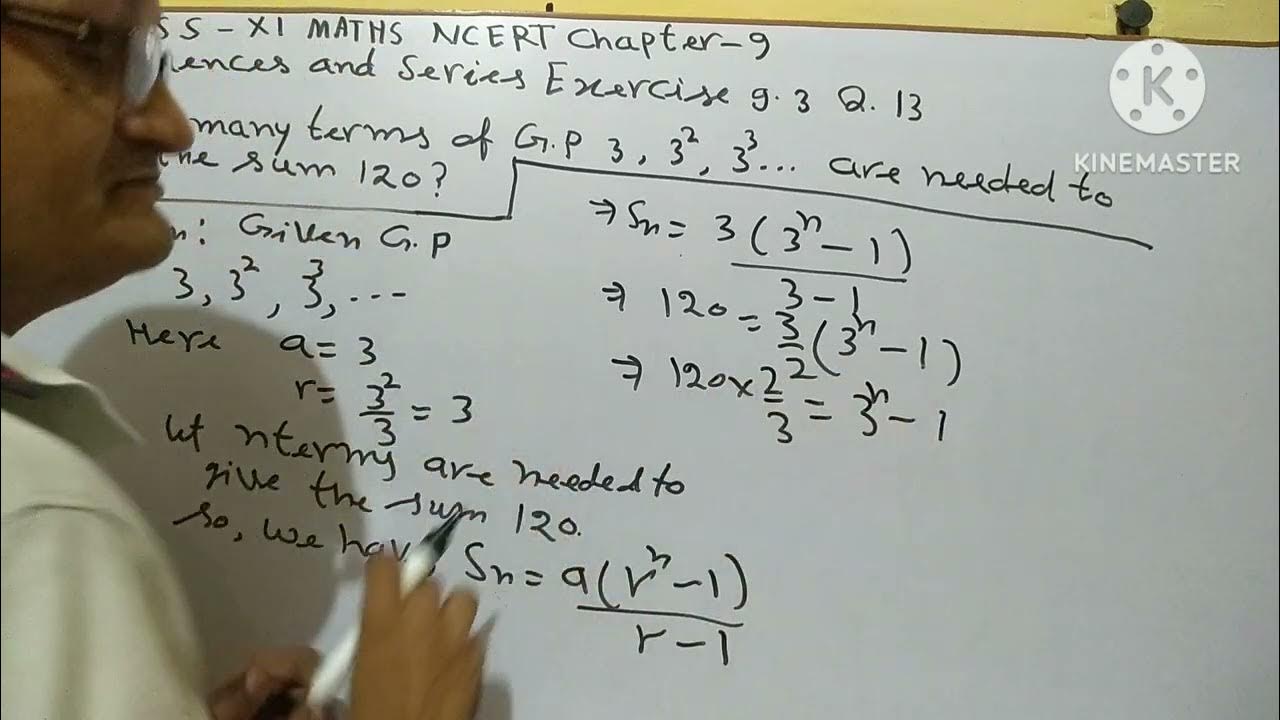 SS - XI MATHS NCERT Chapter-9
ences and Series Exercise 9.3 Q. 13
many terms of G.P 3, 3², 3³... are needed to
the sum 120?
n: Given G.P
3, 3², 3³, ...
Here a = 3
r = 3²/3 = 3
let n terms are needed to
give the sum 120.
so, we have, Sn = a(rⁿ - 1)/r - 1
⇒ Sn = 3(3ⁿ - 1)/3 - 1
⇒ 120 = 3/2(3ⁿ - 1)
⇒ 120 × 2/3 = 3ⁿ - 1
K
KINEMASTER